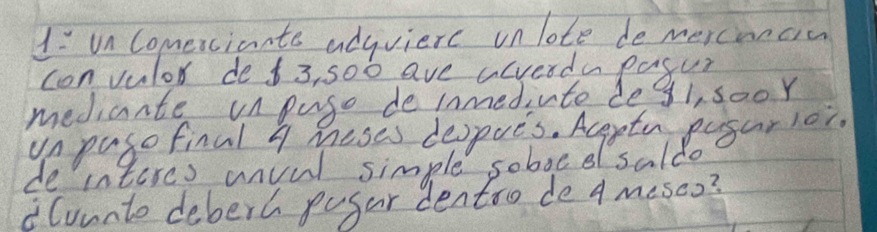 1- Un comerciante adquiere un lote de mercancia
con valor de $3,500 que acuerda pagar
mediante un pago de inmediato de $1,500 Y
un pago final 4 meses después. Acepta pagar 10%
de interes anual simple sobre el saldo
¿Cuanto debera pagar dentro de 4 meses?